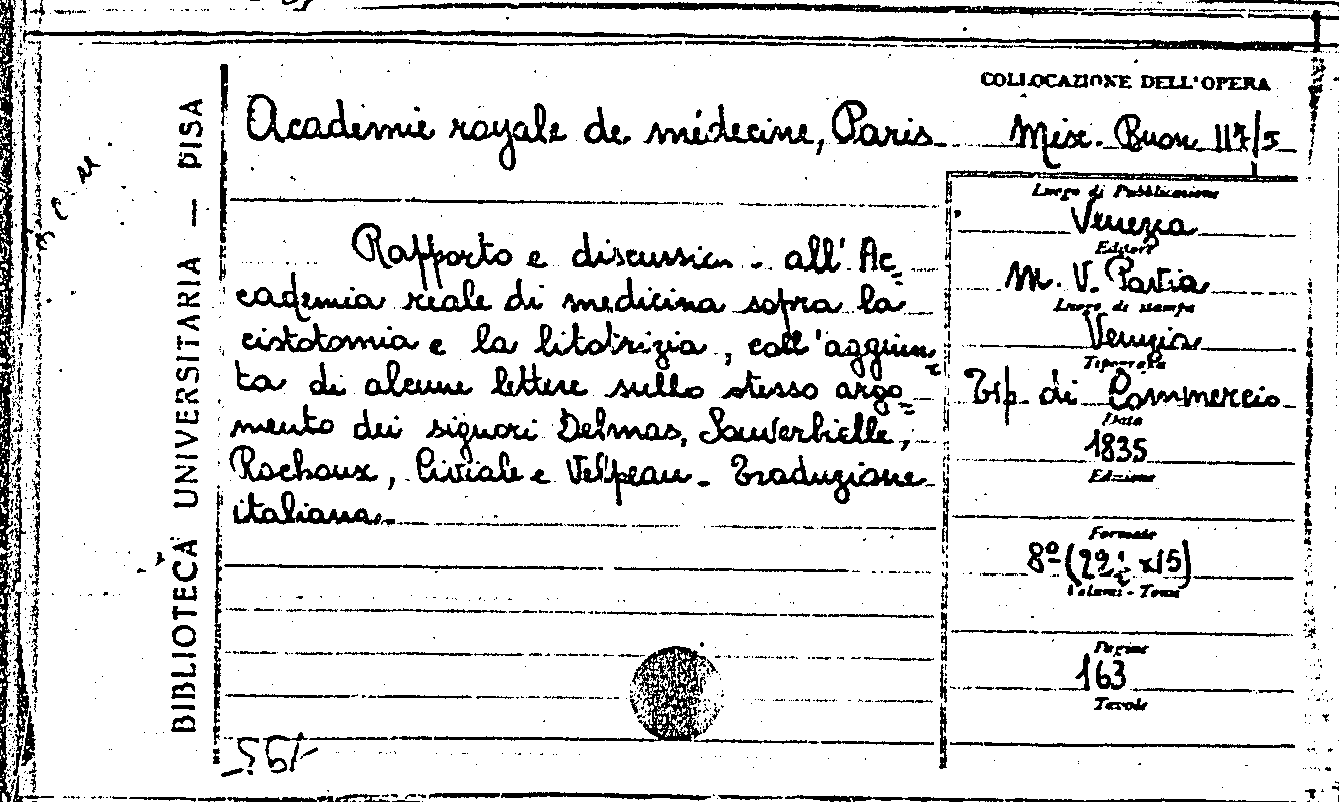 COLLOCAZIONE DELL'OPERA
Academie royale de médecine, Paris
Misc. Buon 117/5
Rapporto e discussion - all'Ac=
cademia reale di medicina sopra la
cistotomia e la litotrizia, coll'aggiun=
ta di alcune lettere sullo stesso argo=
mento dei signori Delmas, Souberbielle,
Rochoux, Civiale e Velpeau - Traduzione
italiana.
Luogo di Pubblicazione
Venezia
Editore
M. V.
Luogo di stampa
Venezia
Tipografia
Tip. di Commercio
Data
1835
Edizione
Formato
8º
Volumi - Tomi
Pagine
163
Tavole
BIBLIOTECA UNIVERSITARIA — PISA